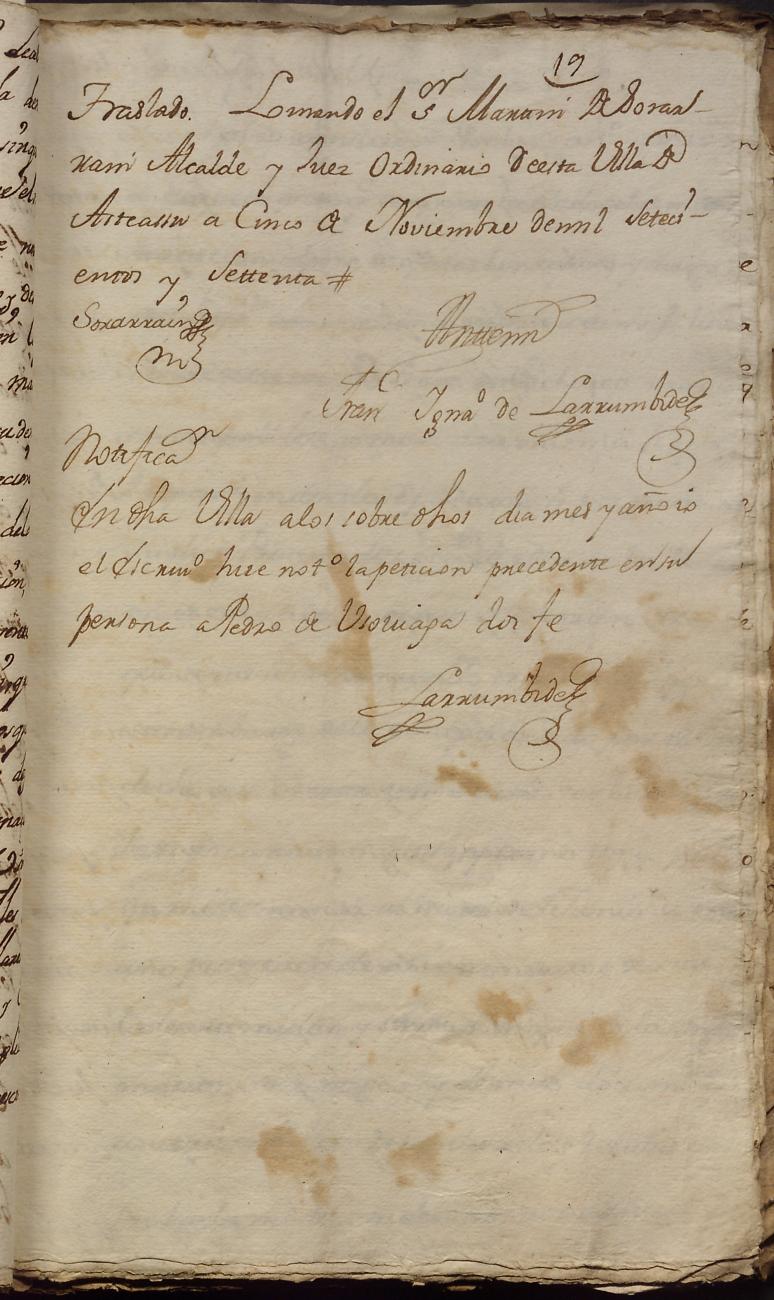 19
Traslado. Lo mando el Sr Martin de Soraa-
rrain Alcalde y Juez Ordinario de esta Villa de
Asteassu a Cinco de Noviembre de mil seteci-
entos y Settenta #
Sorarrain
Antemi
Franco Ignao de Larrumbide
Notificaon
En dha Villa a los sobre dhos dia mes y año io
el Escriuo hice noto la peticion precedente en su
persona a Pedro de Usouiaga doi fe
Larrumbide